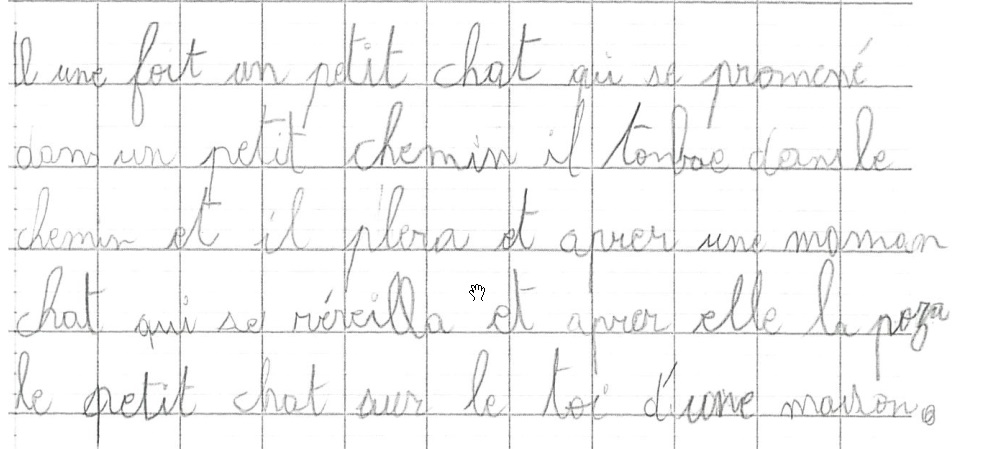 Il une foit un petit chat qui se promené
dans un petit chemin il tonbae dans le
chemin et il plera et aprer une maman
chat qui se réveilla et aprer elle la poza
le petit chat sur le toi d'une maison.